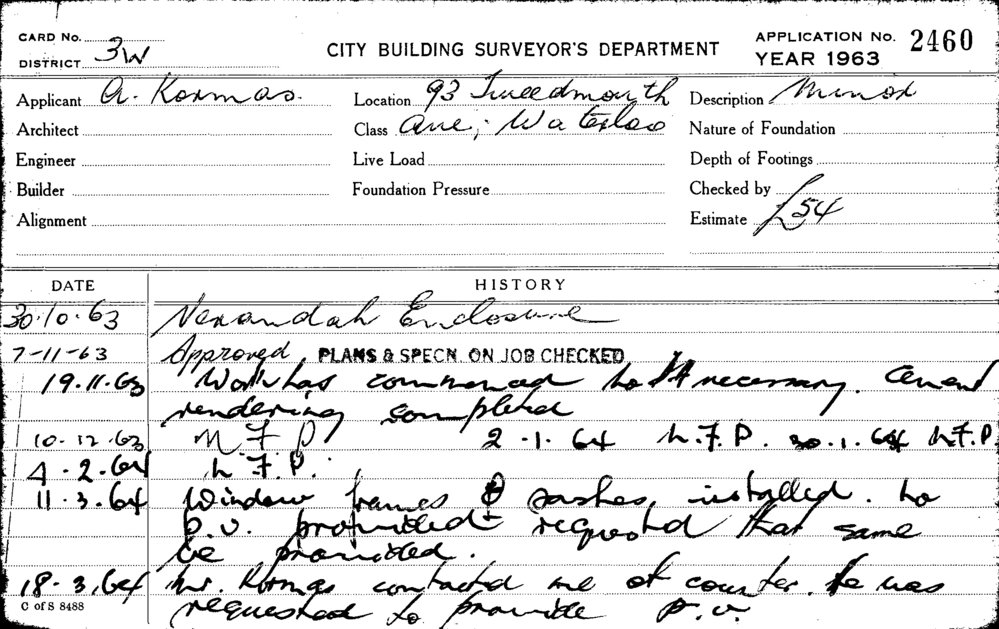 CARD No.
DISTRICT 3W
CITY BUILDING SURVEYOR'S DEPARTMENT
APPLICATION No. 2460
YEAR 1963
Applicant A. Kormas.
Location 93 Tweedmouth
Description Minor
Architect
Class Ave; Waterloo
Nature of Foundation
Engineer
Live Load
Depth of Footings
Builder
Foundation Pressure
Checked by
Alignment
Estimate £54
DATE
HISTORY
30.10.63 Verandah Enclosure
7-11-63 Approved PLANS & SPECN. ON JOB CHECKED
19.11.63 Work has commenced necessary. Cement
rendering completed
10.12.63 N.F.P. 2.1.64 N.F.P. 30.1.64 N.F.P.
4.2.64 N.F.P.
11.3.64 Window frames & sashes installed. No
P.V. provided requested that same
be provided.
18.3.64 Mr. Kormas contacted me at counter. He was
requested to provide P.V.
C of S 8488